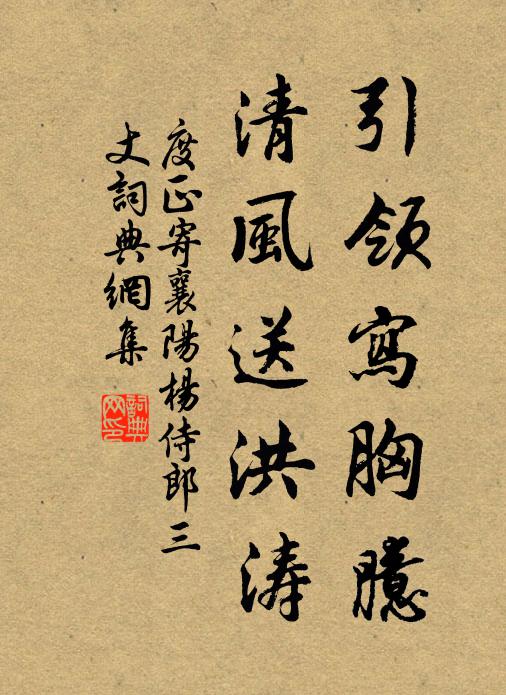 引領寫胸臆
清風送洪濤
度正寄襄陽楊侍郎三
丈詞典網集
詞典
网印